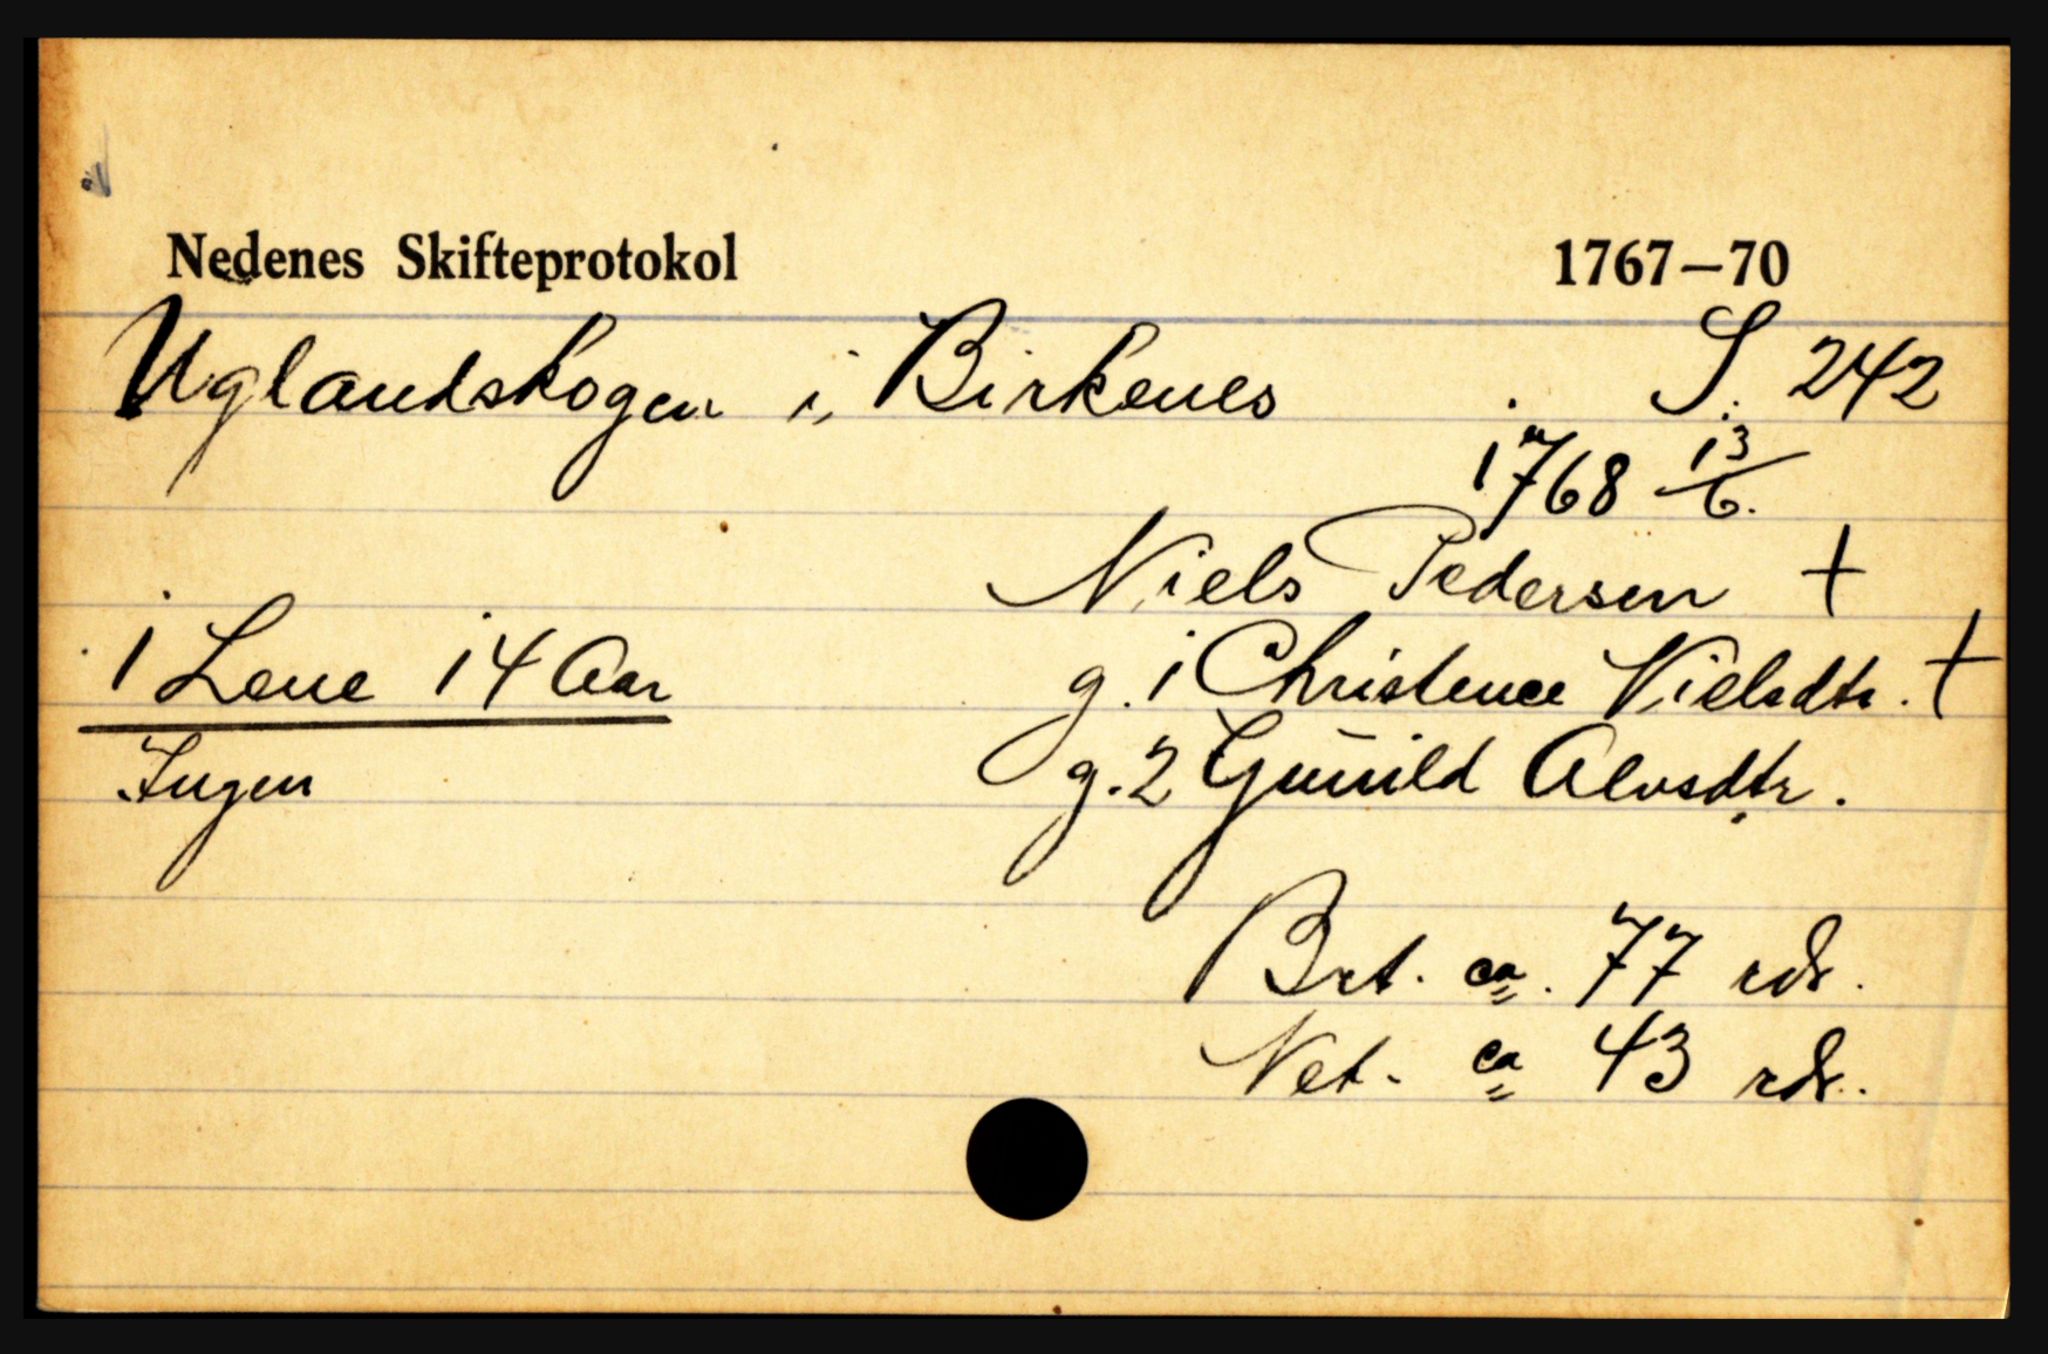 Nedenes Skifteprotokol 1767–70
Uglandskogen i Birkenes S. 242
1768 13/6.
Niels Pedersen +
1 Lene 14 Aar g. 1 Christence Nielsdtr. +
Ingen g. 2 Gunild Alvsdtr.
Brt. ca. 77 rdr.
Net. ca 43 rdr.